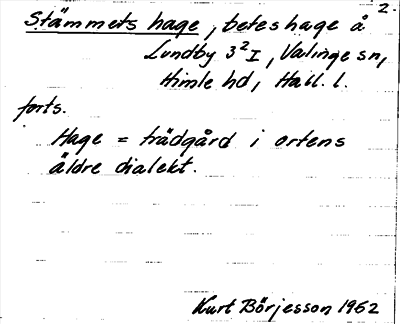 2.
Stämmets hage, beteshage å
Lundby 3²I, Valinge sn,
Himle hd, Hall. l.
forts.
Hage = trädgård i ortens
äldre dialekt.
Kurt Börjesson 1962